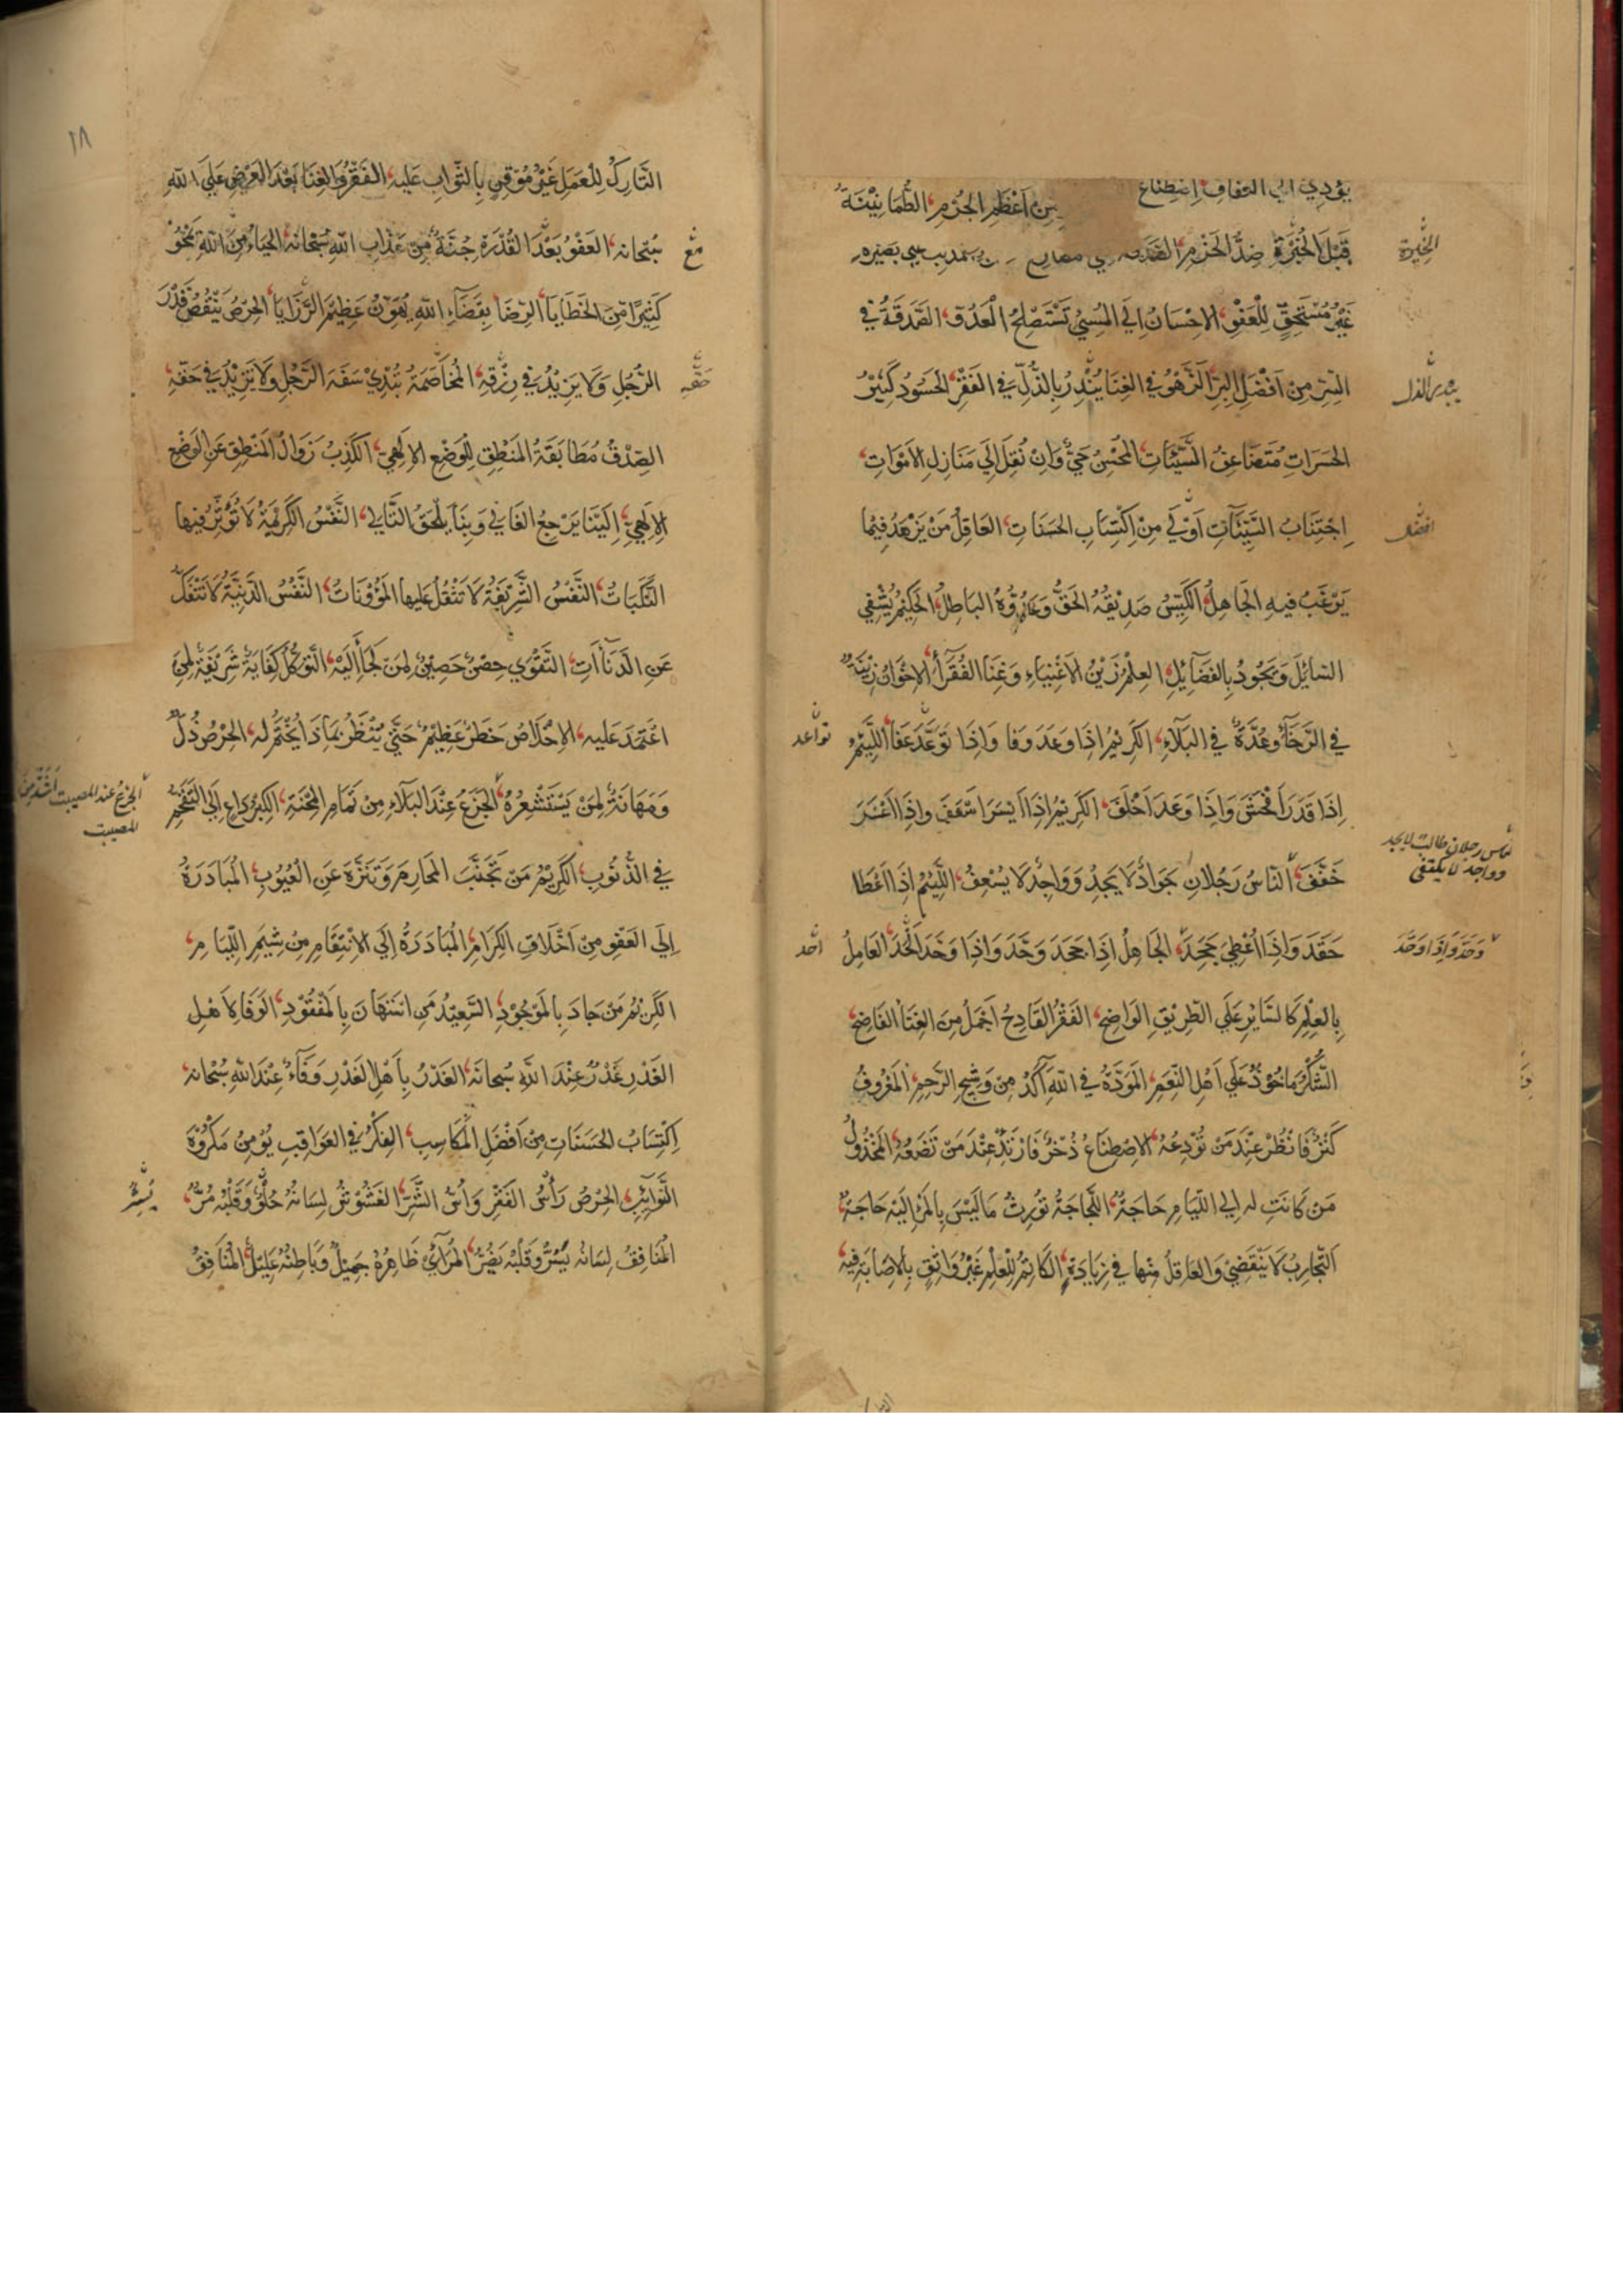 يؤدي الى العفاف اصطناع من اَعْظَمِ الجُرْمِ الطُّمَانِيْنَةُ
قَبْلَ الخُبْرَةِ ضِدُّ الحَزْمِ
غَيْرُ مُسْتَحِقٍّ لِلْعَفْوِ الاِحْسَانُ اِلَي المُسِيْ تَسْتَصْلِحُ العَدُوَّ الصَّدَقَةُ في
السِّرِّ مِنْ اَفْضَلِ البِرِّ الزَّهْوُ في الغِنَا يُنْذِرُ بِالذُّلِّ فِي الفَقْرِ الحَسُودُ كَثِيْرُ
الحَسَرَاتِ مُتَضَاعِفُ السَّيِّئَاتِ المُحْسِنُ حَيٌّ وَاِنْ نُقِلَ اِلَي مَنَازِلِ الاَمْوَاتِ
اِجْتِنَابُ السَّيِّئَآتِ اَوْلَي مِنْ اِكْتِسَابِ الحَسَنَاتِ العَاقِلُ مَنْ يَزْهَدُ فِيْمَا
يَرْغَبُ فيهِ الجَاهِلُ الكَيِّسُ صَدِيْقُهُ الحَقُّ وَعَدُوُّهُ البَاطِلُ الحَكِيْمُ يُشْفِي
السَّائِلَ وَيَجُودُ بِالفَضَآئِلِ العِلْمُ زَيْنُ الاَغْنِيَاءِ وَغِنَا الفُقَرَاءِ الاِخْوَانُ زِيْنَةٌ
في الرَّخَآءِ وَعُدَّةٌ في البَلَآءِ الكَرِيْمُ اِذَا وَعَدَ وَفَا وَاِذَا تَوَعَّدَ عَفَا اللَّئِيْمُ
اِذَا قَدَرَ اَفْحَشَ وَاِذَا وَعَدَ اَخْلَفَ الكَرِيْمُ اِذَا اَيْسَرَ اَسْعَفَ وَاِذَا اَعْسَرَ
خَفَّفَ النَّاسُ رَجُلَانِ جَوَادٌ لَا يَجِدُ وَوَاجِدٌ لَا يُسْعِفُ اللَّئِيْمُ اِذَا اَعْطَا
حَقَدَ وَاِذَا اُعْطِيَ جَحَدَ الجَاهِلُ اِذَا جَحَدَ وَحَّدَ وَاِذَا وَحَّدَ اَلْحَدَ العَامِلُ
بِالعِلْمِ كَالسَّايْرِ عَلَي الطَّرِيْقِ الوَاضِحِ الفَقْرُ الفَادِحُ اَجْمَلُ مِنَ الغِنَا الفَاضِحِ
الشُّكْرُ مَاخُوْذٌ عَلَي اَهْلِ النِّعَمِ المَوَدَّةُ في اللهِ آكَدُ مِنْ وَشِيْجِ الرَّحِمِ المَعْرُوْفُ
كَنْزٌ فَانْظُرْ عِنْدَ مَنْ تُوْدِعُهُ الاِصْطِنَاعُ ذُخْرٌ فَارْتَدْ عِنْدَ مَنْ تَضَعُهُ المَخْذُوْلُ
مَنْ كَانَتْ له الي اللِّيَامِ حَاجَةٌ اللَّجَاجَةُ تُوْرِثُ مَا لَيْسَ بِالْمَرْءِ اِلَيْهِ حَاجَةٌ
التَّجَارِبُ لَا يَنْقَضِيْ وَالعَاقِلُ مِنْها في زِيَادَةٍ الكَاتِمُ لِلْعِلْمِ غَيْرُ وَاثِقٍ بِالاِصَابَةِ فِيْهِ
الخيرة
ينذر الذل
افضل
تواعد
الناس رجلان طالب لا يجد
وواجد لا يكتفي
وَحَّدَ وَاِذَا وَحَّدَ
الحد
١٨
التَّارِكُ لِلْعَمَلِ غَيْرُ مُوْقِنٍ بِالثَّوَابِ عَلَيه الفَقْرُ وَالغِنَا بَعْدَ العَرْضِ عَلَي اللهِ
سُبْحَانه العَفْوُ بَعْدَ القُدْرَةِ جُنَّةٌ مِنْ عَذَابِ اللهِ سُبْحَانَهُ الحَيَاءُ مِنَ اللهِ يَمْحُوْ
كَثِيْرًا مِنَ الخَطَايَا الرِّضَا بِقَضَآءِ اللهِ يُهَوِّنُ عَظِيْمَ الرَّزَايَا الحِرْصُ يَنْقُصُ قَدْرَ
الرَّجُلِ وَلَا يَزِيْدُ في رِزْقِهِ المُخَاصَمَةُ تُبْدِيْ سَفَهَ الرَّجُلِ وَلَا تَزِيْدُ في حَقِّهِ
الصِّدْقُ مُطَابَقَةُ المَنْطِقِ لِلْوَضْعِ الاِلَهِيِّ الكَذِبُ زَوَالُ المَنْطِقِ عَنِ الوَضْعِ
الاِلَهِيِّ اِلَيْنَا يَرْجِعُ الغَالي وَبِنَا يَلْحَقُ التَّالي النَّفْسُ الكَرِيْمَةُ لَا تُؤَثِّرُ فيها
النَّكَبَاتُ النَّفْسُ الشَّرِيْفَةُ لَا تَثْقُلُ عَلَيها المَؤُوْنَاتُ النَّفْسُ الدَّنِيَّةُ لَا تَنْفَكُّ
عَنِ الدَّنَاآتِ التَّقْوَي حِصْنٌ حَصِيْنٌ لِمَنْ لَجَأَ اِلَيْهِ التَّوَكُّلُ كِفَايَةٌ شَرِيْفَةٌ لِمَنِ
اعْتَمَدَ عَلَيه الاِخْلَاصُ خَطَرٌ عَظِيْمٌ حَتَّي يُنْظَرُ بِمَاذَا يُخْتَمُ له الحِرْصُ ذُلٌّ
وَمَهَانَةٌ لِمَنْ يَسْتَشْعِرُهُ الجَزَعُ عِنْدَ البَلَآءِ مِنْ تَمَامِ المِحْنَةِ الكِبْرُ دَاعٍ اِلَي التَّقَحُّمِ
في الذُّنُوْبِ الكَرِيْمُ مَنْ تَجَنَّبَ المَحَارِمَ وَتَنَزَّهَ عَنِ العُيُوْبِ المُبَادَرَةُ
اِلَي العَفْوِ مِنْ اَخْلَاقِ الكِرَامِ المُبَادَرَةُ اِلَي الاِنْتِقَامِ مِنْ شِيَمِ اللِّيَامِ
الكَرِيْمُ مَنْ جَادَ بِالمَوْجُوْدِ السَّعِيْدُ مَنِ اسْتَهَانَ بِالمَفْقُوْدِ الوَفَا لِاَهْلِ
الغَدْرِ غَدْرٌ عِنْدَ اللهِ سُبحانَهُ الغَدْرُ بِاَهْلِ الغَدْرِ وَفَآءٌ عِنْدَ اللهِ سُبْحَانه
اِكْتِسَابُ الحَسَنَاتِ مِنْ اَفْضَلِ المَكَاسِبِ الفِكْرُ في العَوَاقِبِ يُؤْمِنُ مَكْرُوْهَ
النَّوَآئِبِ الحِرْصُ رَأْسُ الفَقْرِ وَاُسُّ الشَّرِّ الغَشُوْشُ لِسَانُهُ حُلْوٌ وَقَلْبُهُ مُرٌّ
المُنَافِقُ لِسَانُهُ يَسُرُّ وَقَلْبُهُ يَضُرُّ المُرَآئِيْ ظَاهِرُهُ جَمِيْلٌ وَبَاطِنُهُ عَلِيْلٌ المُنَافِقُ
حقه
الجزع عند المصيبت اشد من
المصيبت